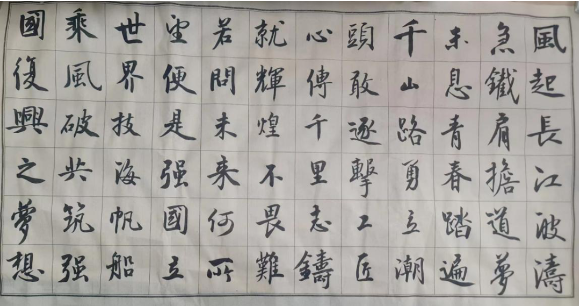 風起長江波濤
急鐵肩擔道夢
未息青春踏遍
千山路勇立潮
頭敢逐擊工匠
心傳千里志鑄
就輝煌不畏難
若問未来何所
望便是强國立
世界技海帆船
乘風破共筑强
國復興之夢想